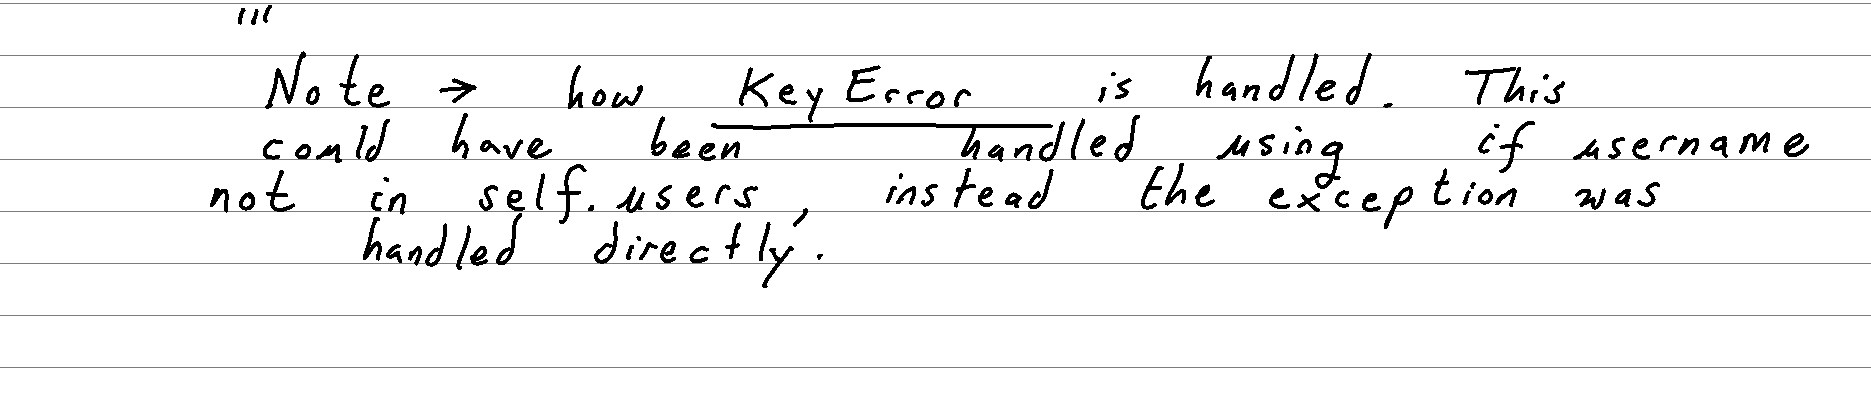 '''
Note → how KeyError is handled. This
could have been handled using if username
not in self.users, instead the exception was
handled directly.